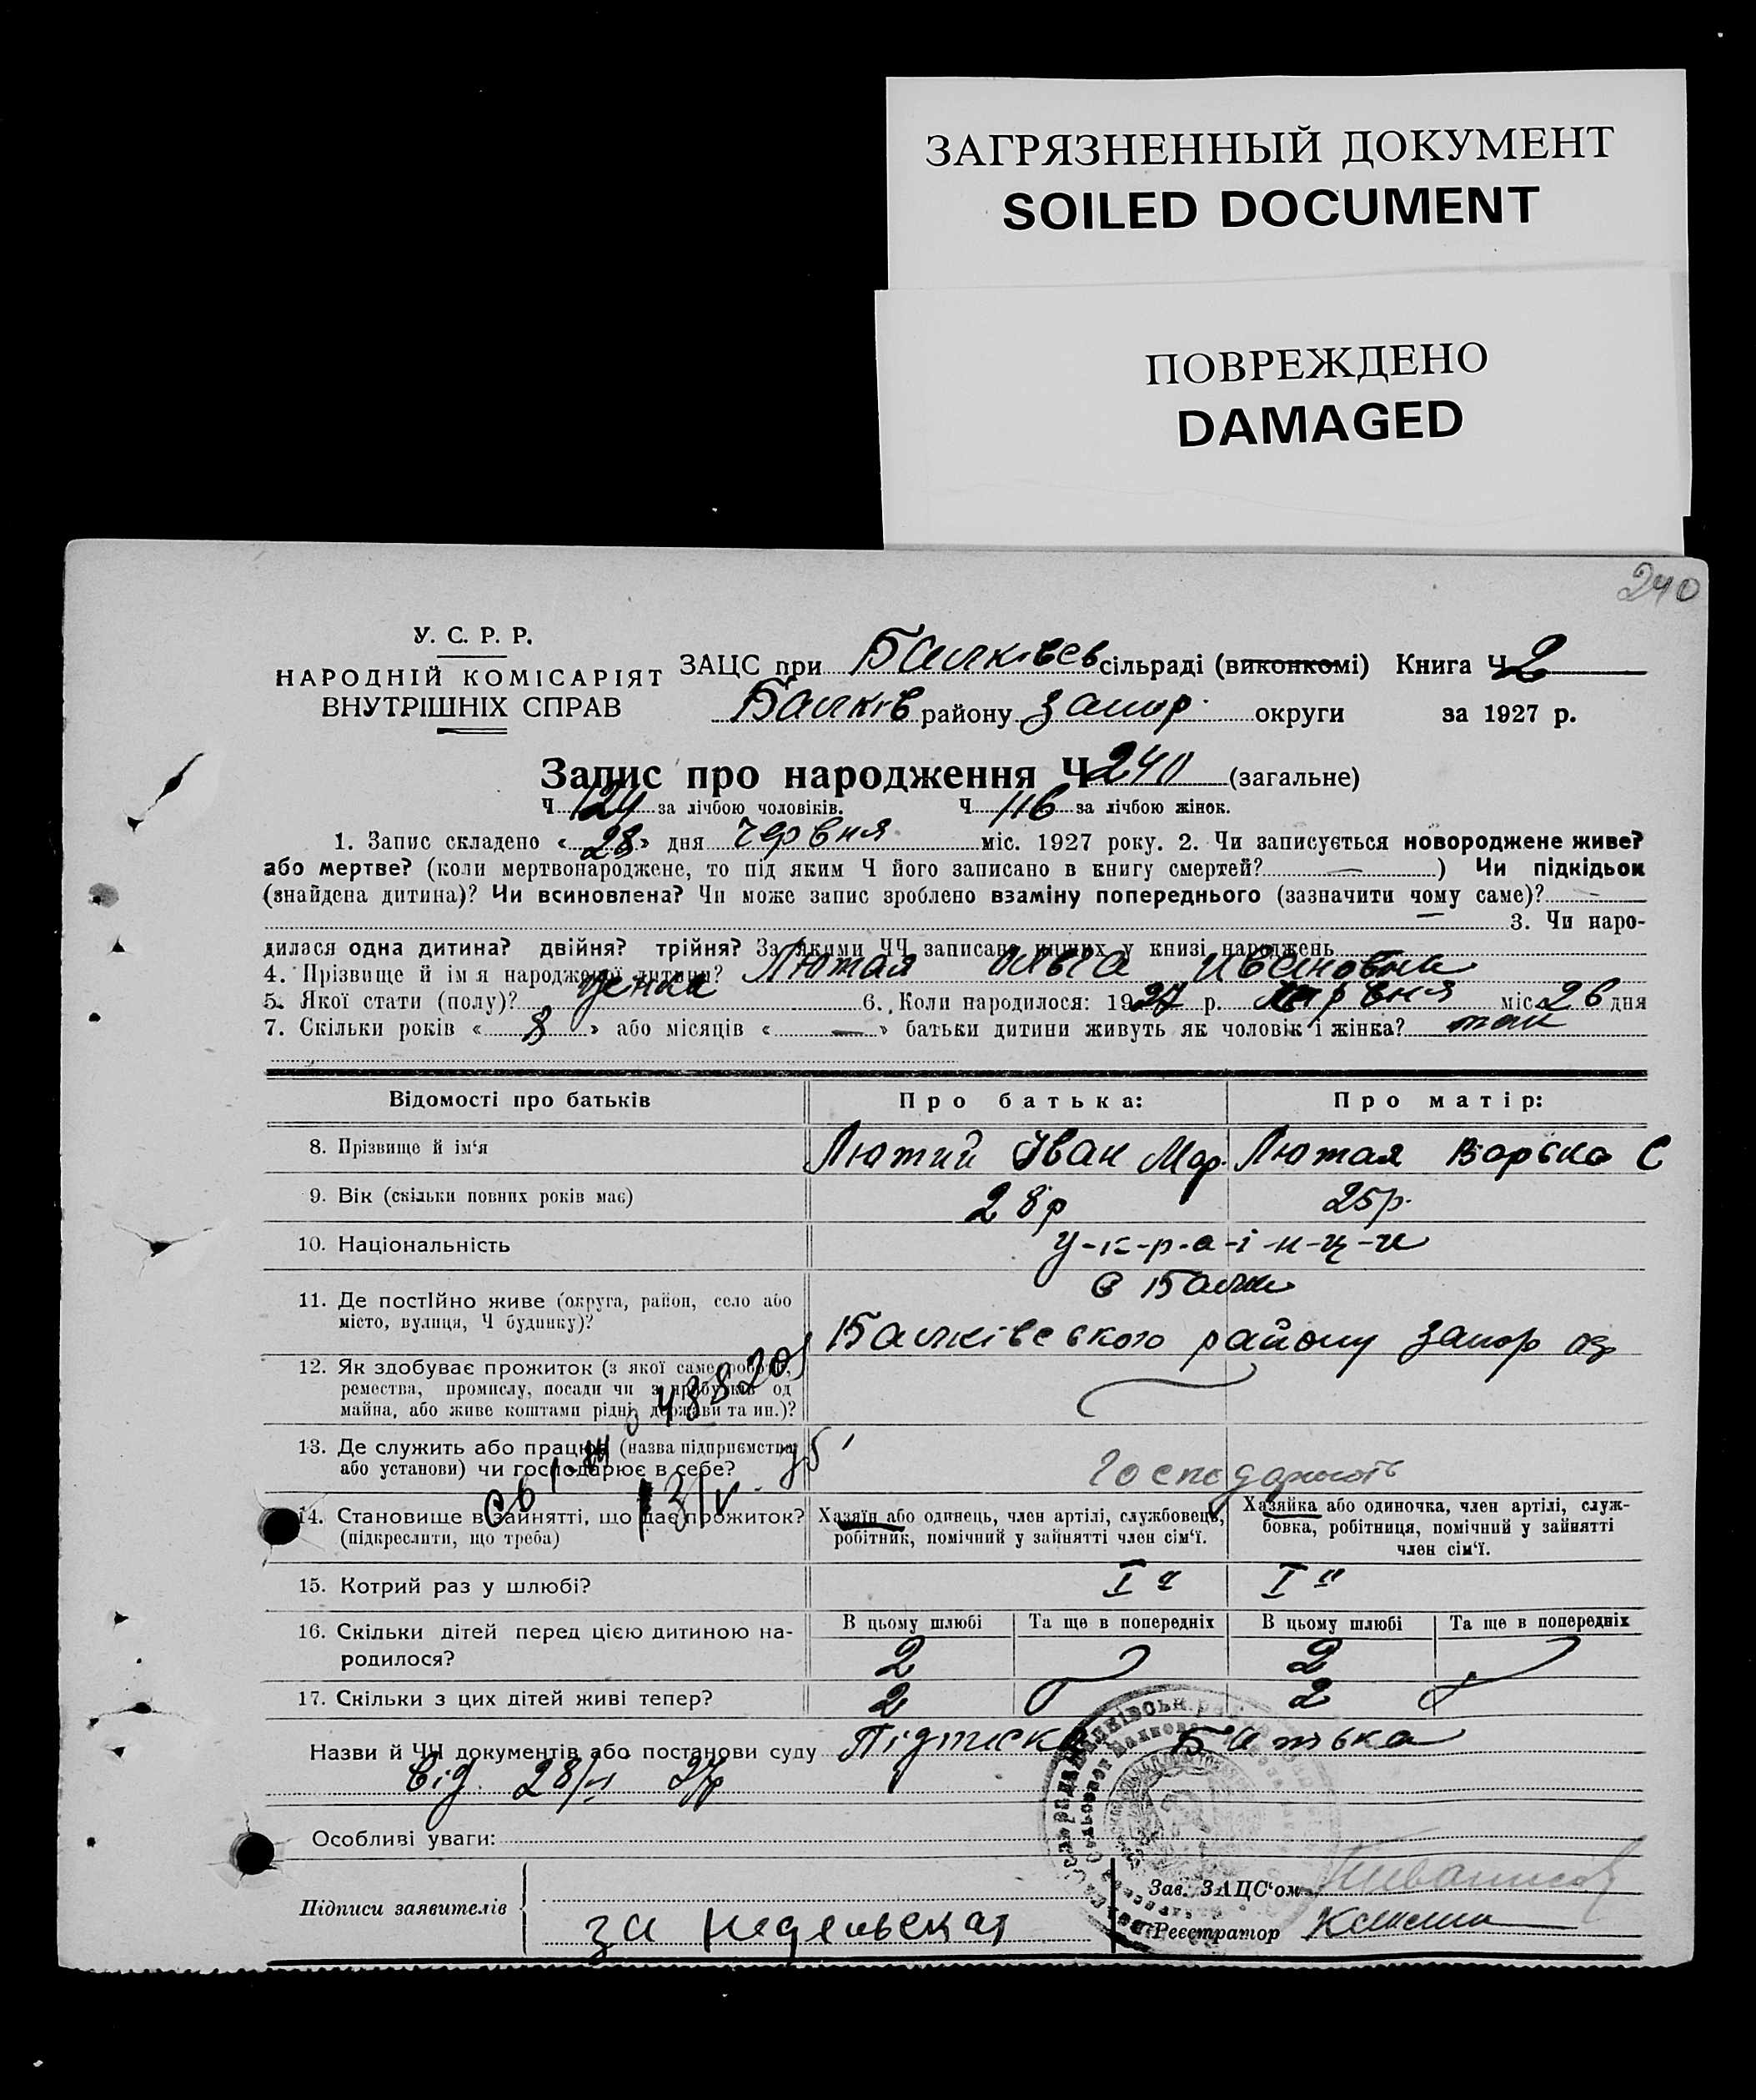 ЗАГРЯЗНЕННЫЙ ДОКУМЕНТ
SOILED DOCUMENT
ПОВРЕЖДЕНО
DAMAGED
240
У. С. Р. Р.
НАРОДНІЙ КОМІСАРІЯТ
ВНУТРІШНІХ СПРАВ
ЗАЦС при Балківсв сільраді (виконкомі) Книга Ч 2
Балків району Запор. округи за 1927 р.
Запис про народження Ч 240 (загальне)
Ч 124 за лічбою чоловіків. Ч 116 за лічбою жінок.
1. Запис складено «28» дня червня міс. 1927 року. 2. Чи записується новороджене живе?
або мертве? (коли мертвонароджене, то під яким Ч його записано в книгу смертей? — ) Чи підкідьок
(знайдена дитина)? Чи всиновлена? Чи може запис зроблено взаміну попереднього (зазначити чому саме)? —
— 3. Чи наро-
дилася одна дитина? двійня? трійня? За якими ЧЧ записано инших у книзі народжень
4. Прізвище й імя народженої дитини? Лютая Ольга Ивановна
5. Якої стати (полу)? 6. Коли народилося: 1927 р. червня міс. 26 дня
7. Скільки років « 8 » або місяців « — » батьки дитини живуть як чоловік і жінка? так
Відомості про батьків Про батька: Про матір:
8. Прізвище й ім'я Лютий Іван Мар. Лютая Варька С
9. Вік (скільки повних років має) 28р 25р.
10. Національність у-к-р-а-ї-н-ц-и
11. Де постійно живе (округа, район, село або
місто, вулиця, Ч будинку)?
с Балки
Балківського району Запор окр
12. Як здобуває прожиток (з якої саме роботи,
ремества, промислу, посади чи з прибутків од
майна, або живе коштами рідні, держави та ин.)?
13. Де служить або працює (назва підприємства
або установи) чи господарює в себе?
14. Становище в зайнятті, що дає прожиток?
(підкреслити, що треба)
Хазяїн або одинець, член артілі, службовець,
робітник, помічний у зайнятті член сім'ї.
Хазяйка або одиночка, член артілі, служ-
бовка, робітниця, помічний у зайнятті
член сім'ї.
15. Котрий раз у шлюбі? I й I й
16. Скільки дітей перед цією дитиною на-
родилося?
В цьому шлюбі Та ще в попередніх В цьому шлюбі Та ще в попередніх
2 2
17. Скільки з цих дітей живі тепер? 2 2
Назви й ЧЧ документів або постанови суду Підписка Батька
від 28/VI 27р
Особливі уваги:
Підписи заявителів
за
Зав. ЗАЦС'ом
Реєстратор